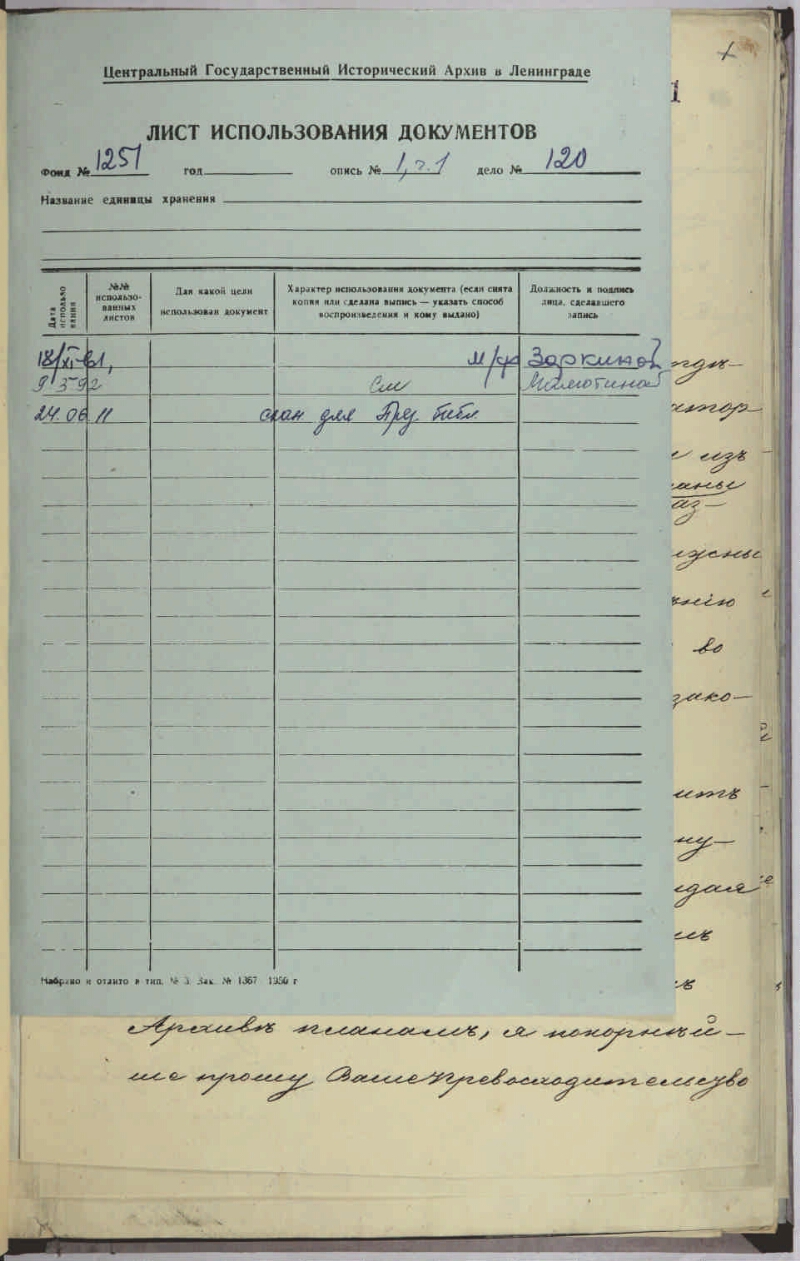 Центральный Государственный Исторический Архив в Ленинграде
1
ЛИСТ ИСПОЛЬЗОВАНИЯ ДОКУМЕНТОВ
Фонд № 1251 год опись № 1, т. 1 дело № 120
Название единицы хранения
Дата использования
№№ использо-
ванных
листов
Для какой цели
использован документ
Характер использования документа (если снята
копия или сделана выпись — указать способ
воспроизведения и кому выдано)
Должность и подпись
лица, сделавшего
запись
18/XI-61, м/ф
9 3 92
24.06 11 скан для През. библ.
во
Набрано и отлито в тип. № 3 Зак. № 1367 1956 г
Архивъ
ше прошу Ваше Превосходительство